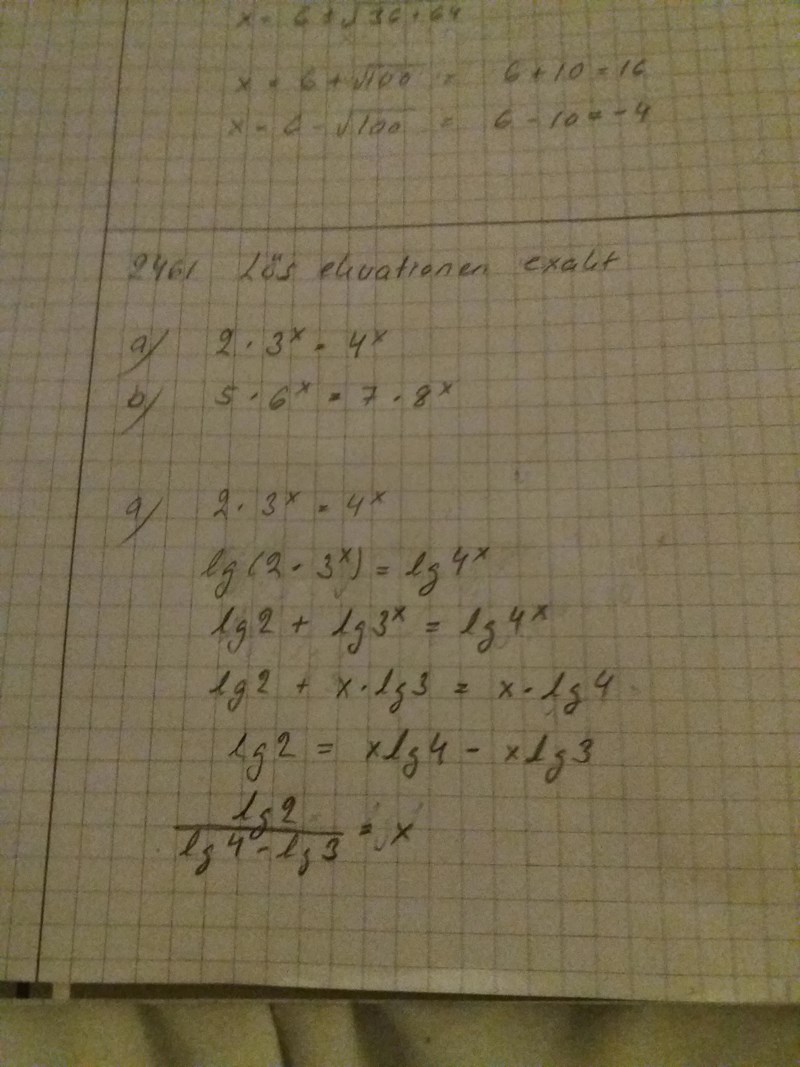 x = 6 ± √36+64
x = 6 + √100 = 6 + 10 = 16
x = 6 - √100 = 6 - 10 = -4
2461 Lös ekvationen exakt
a) 2 · 3ˣ = 4ˣ
b) 5 · 6ˣ = 7 · 8ˣ
a) 2 · 3ˣ = 4ˣ
lg(2 · 3ˣ) = lg4ˣ
lg2 + lg3ˣ = lg4ˣ
lg2 + x·lg3 = x·lg4
lg2 = xlg4 - xlg3
lg2
lg4-lg3 = x